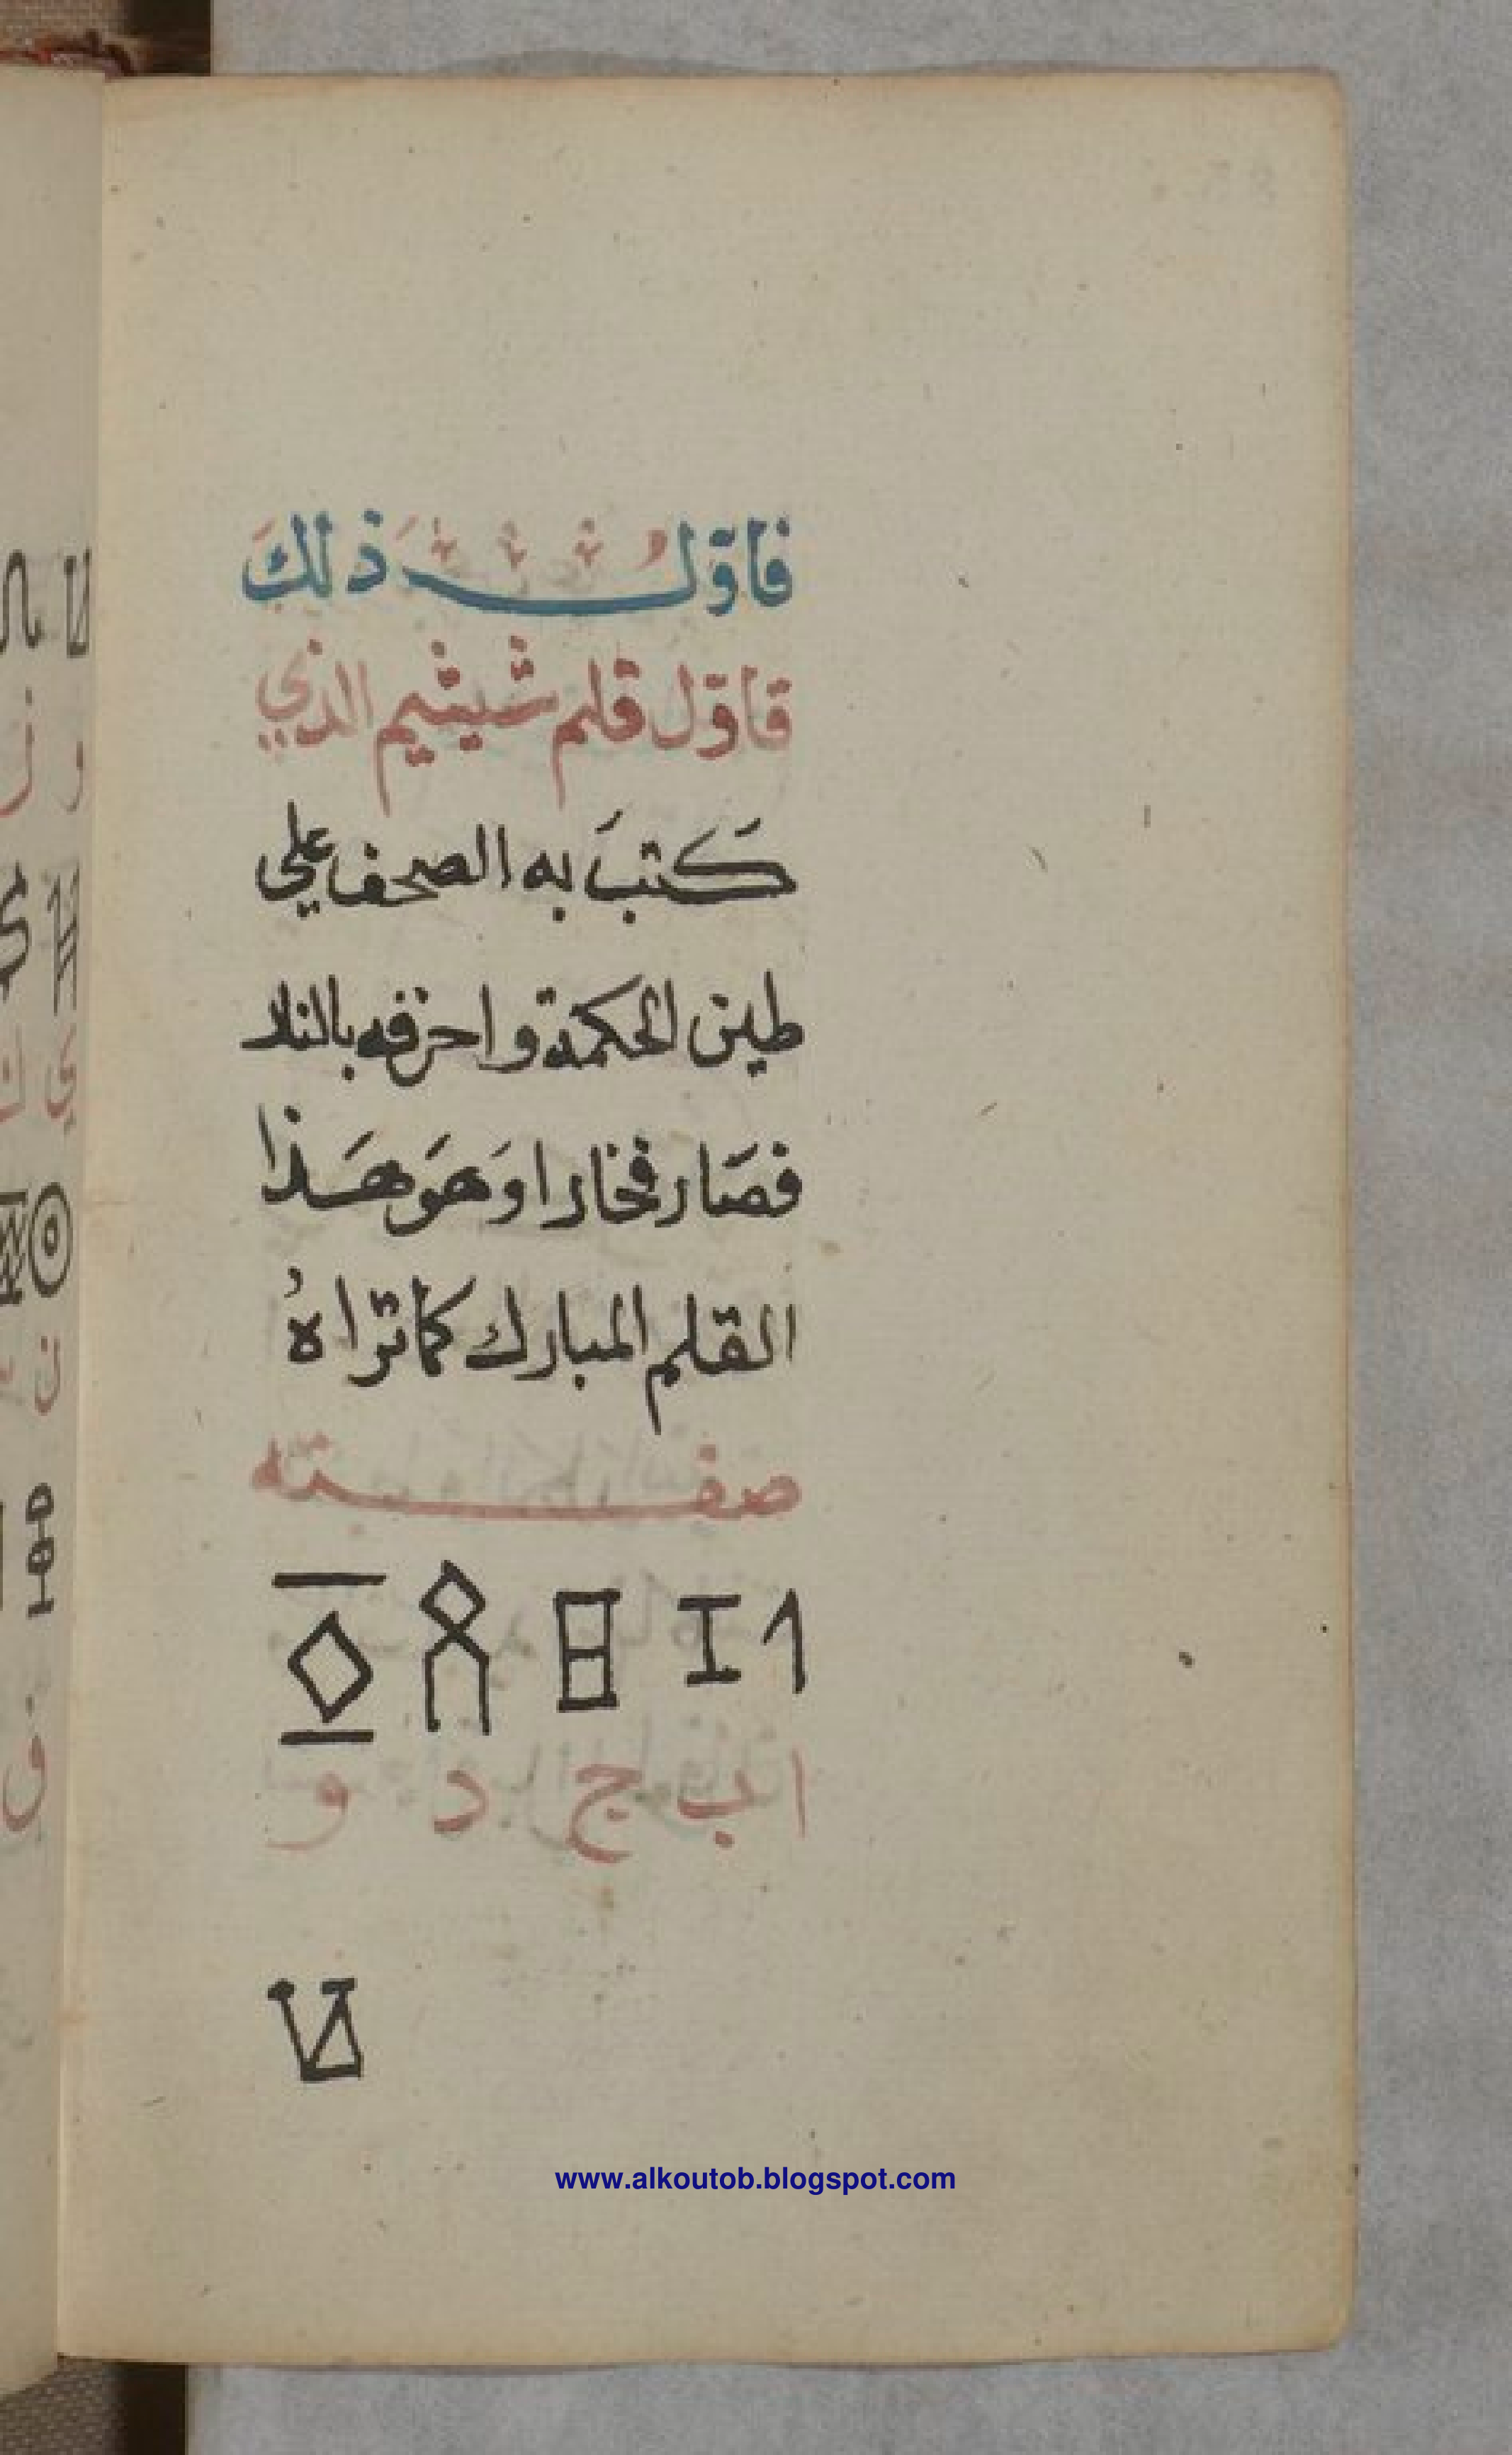 فاوّلُ ذلكَ
فاوّل قلم شيشيم الذي
كَتبَ به الصحف علي
طين الحكمة واحرقه بالنار
فصَار فخارا وَهَو هَذا
القلم المبارك كما تراهُ
صفته
ا ب ج د و
www.alkoutob.blogspot.com